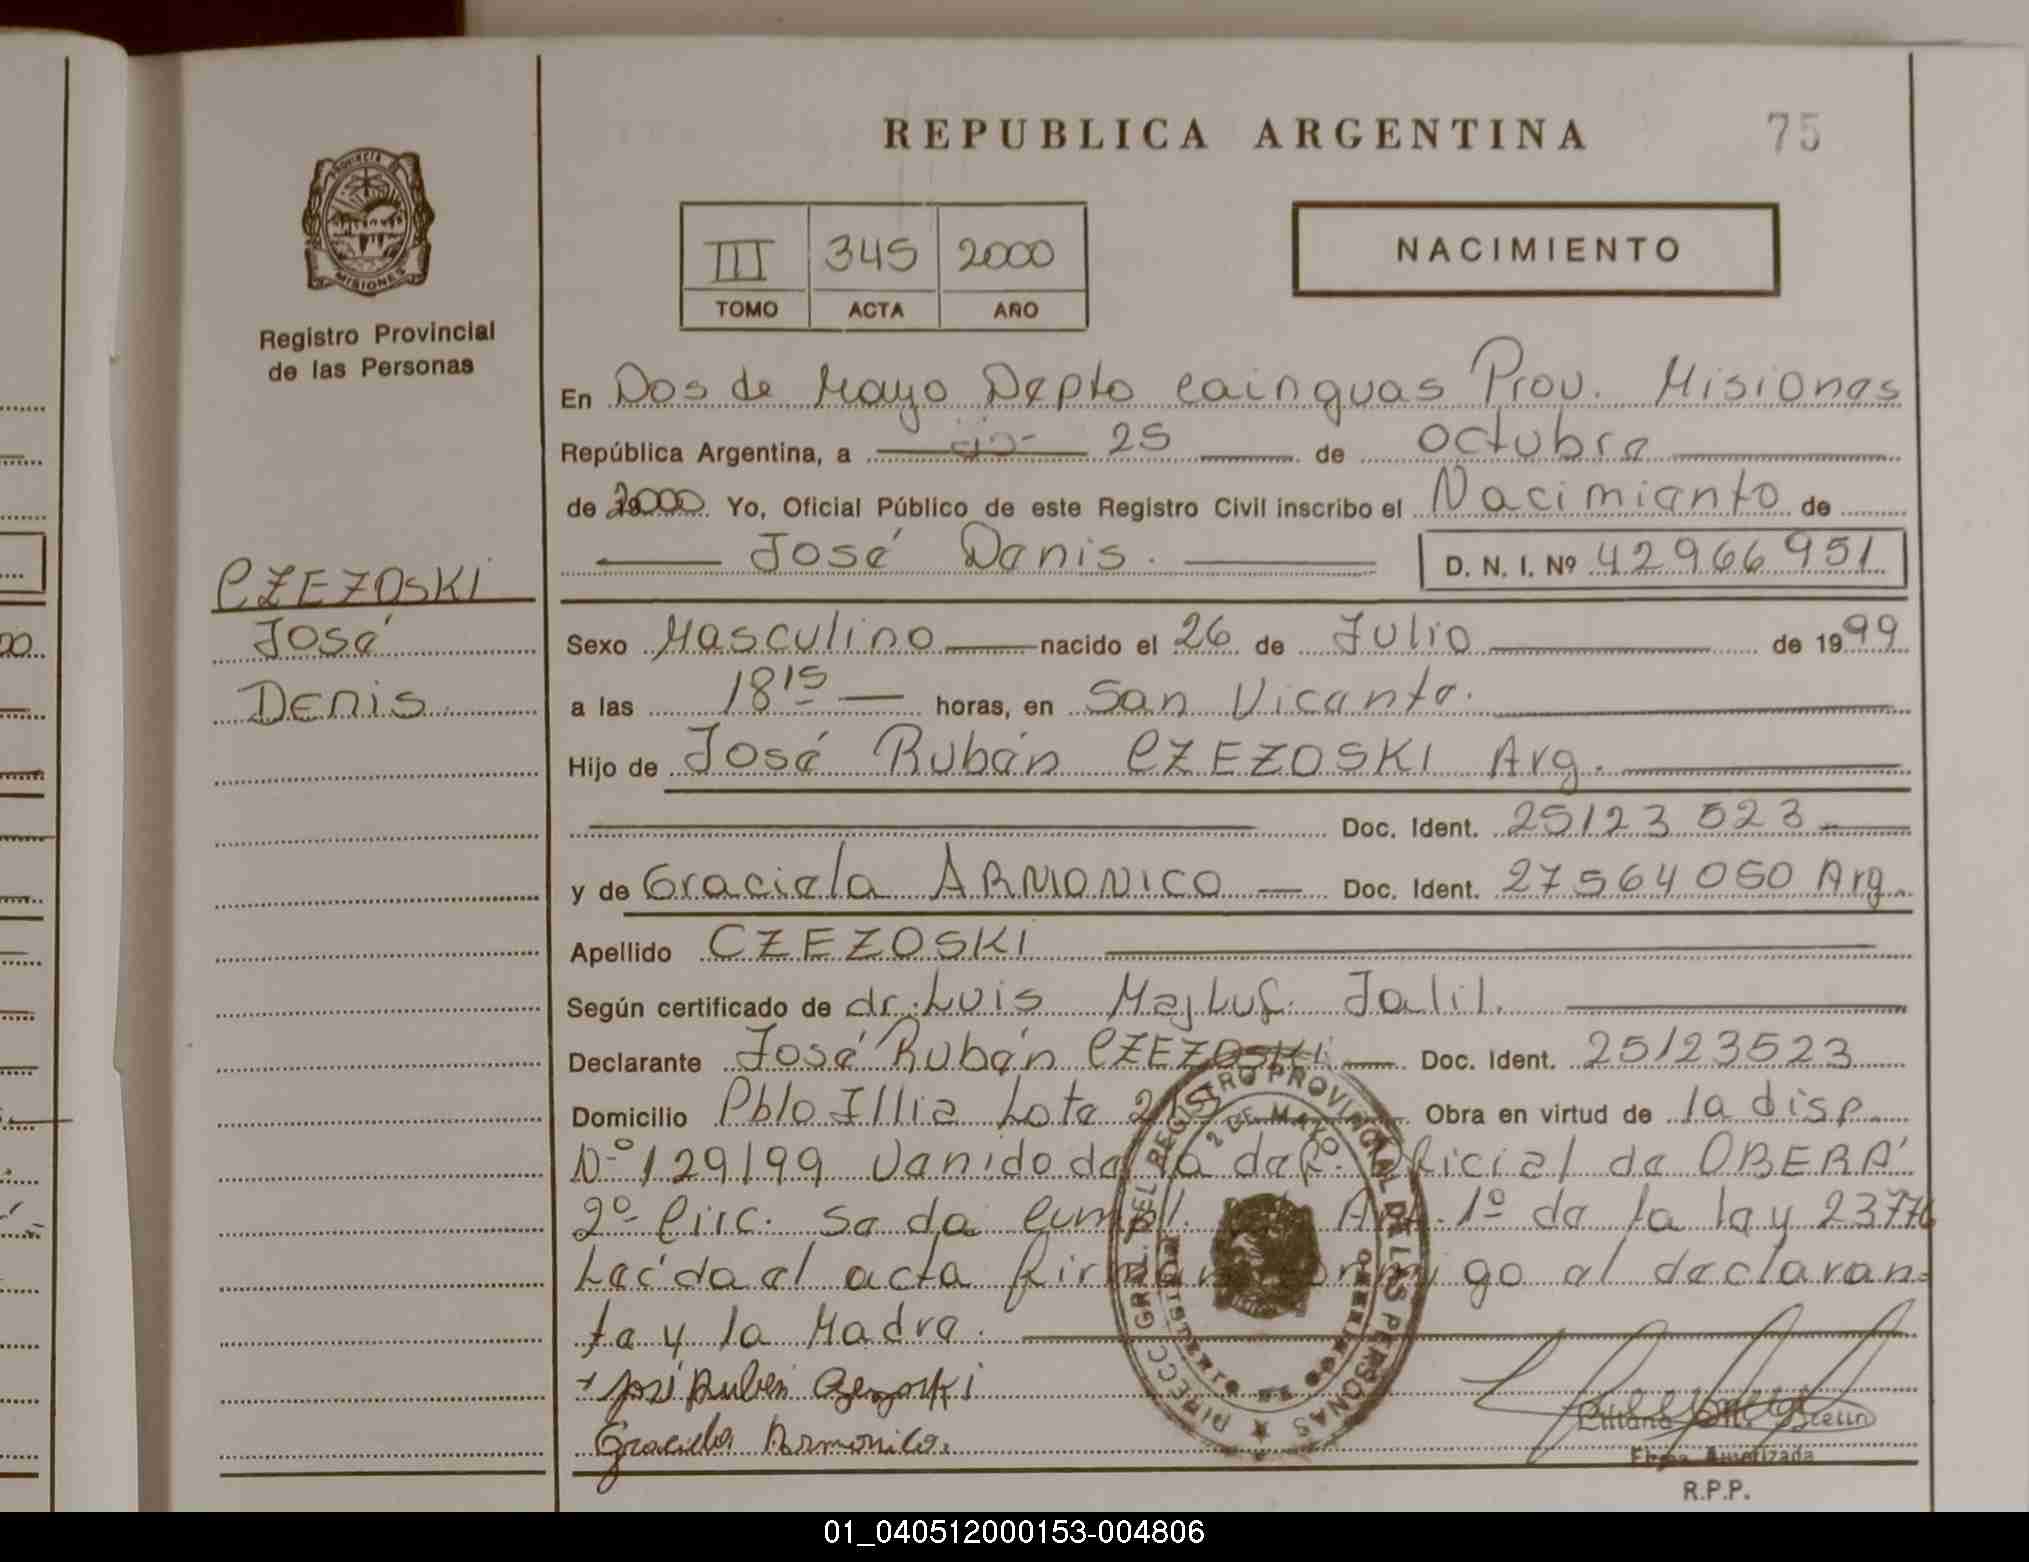 REPUBLICA ARGENTINA
75
III 345 2000
TOMO ACTA AÑO
NACIMIENTO
PROVINCIA
MISIONES
Registro Provincial
de las Personas
CZEZOSKI
José
Denis
En Dos de Mayo Depto Cainguas Prov. Misiones
República Argentina, a 25 de octubre
de 2000 Yo, Oficial Público de este Registro Civil inscribo el Nacimiento de
José Denis. D. N. I. Nº 42966951
Sexo Masculino nacido el 26 de Julio de 1999
a las 18 15 horas, en San Vicente.
Hijo de José Rubén CZEZOSKI Arg.
Doc. Ident. 25123 523
y de Graciela ARMONICO Doc. Ident. 27564050 Arg.
Apellido CZEZOSKI
Según certificado de dr. Luis Majluf. Jalil.
Declarante José Rubén CZEZOSKI Doc. Ident. 25123523
Domicilio Pblo Illia Lote Obra en virtud de la disp.
Nº 129/99 venido de la del. Oficial de OBERÁ
2º Circ. se da cumpl. Art. 1º de la ley 23776
Leída el acta firman conmigo el declaran-
te y la Madre.
José Rubén Czezoski
Graciela Armonico.
DIRECC. GRAL. DEL REGISTRO PROVINCIAL DE LAS PERSONAS
2 DE MAYO
MINISTERIO DE GOBIERNO
Firma Autorizada
R.P.P.
01_040512000153-004806